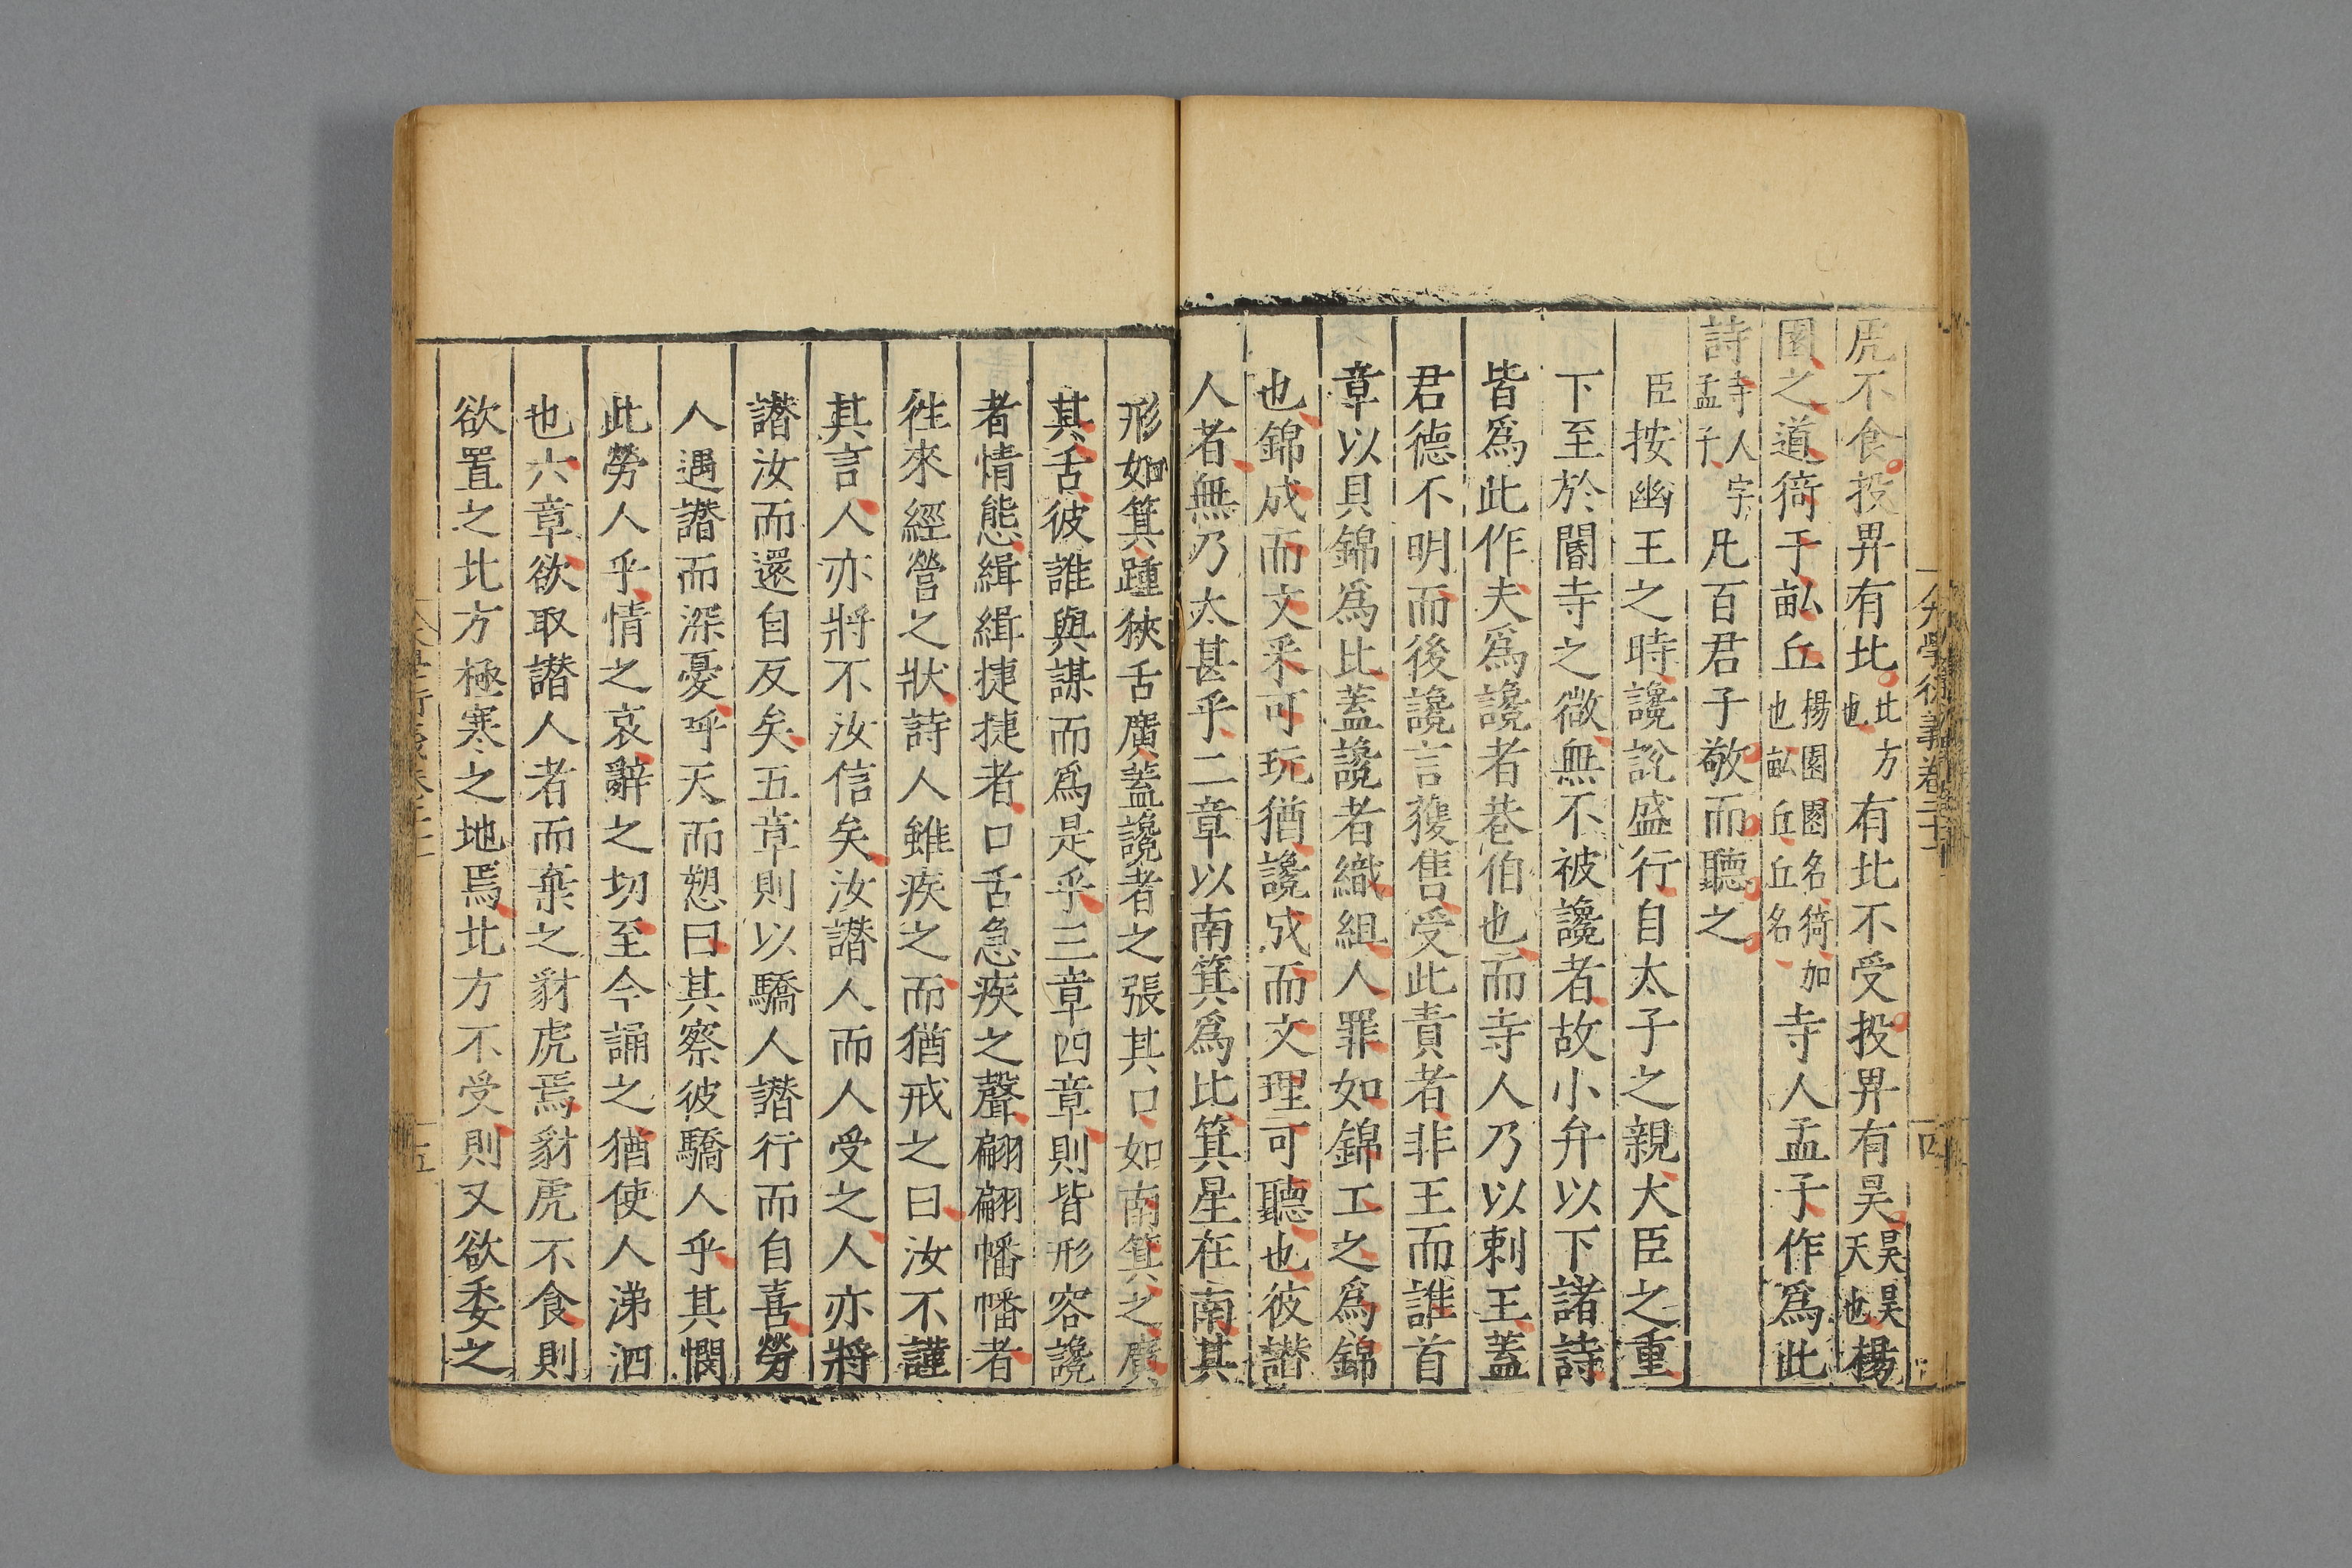 大學衍義卷二十
四
虎不食投畀有北北方也有北不受投畀有昊昊昊天也楊
園之道猗于畝丘楊園園名猗加也畝丘丘名寺人孟子作為此
詩寺人字孟子凡百君子敬而聽之
臣按幽王之時讒說盛行自太子之親大臣之重
下至於閽寺之微無不被讒者故小弁以下諸詩
皆為此作夫為讒者巷伯也而寺人乃以刺王蓋
君德不明而後讒言獲售受此責者非王而誰首
章以貝錦為比蓋讒者織組人罪如錦工之為錦
也錦成而文采可玩猶讒成而文理可聽也彼譖
人者無乃太甚乎二章以南箕為比箕星在南其
形如箕踵狹舌廣蓋讒者之張其口如南箕之廣
其舌彼誰與謀而為是乎三章四章則皆形容讒
者情態緝緝捷捷者口舌急疾之聲翩翩幡幡者
徃來經營之狀詩人雖疾之而猶戒之曰汝不謹
其言人亦將不汝信矣汝譖人而人受之人亦將
譖汝而還自反矣五章則以驕人譖行而自喜勞
人遇譖而深憂呼天而愬曰其察彼驕人乎其憫
此勞人乎情之哀辭之切至今誦之猶使人涕泗
也六章欲取譖人者而棄之豺虎焉豺虎不食則
欲置之北方極寒之地焉北方不受則又欲委之
五